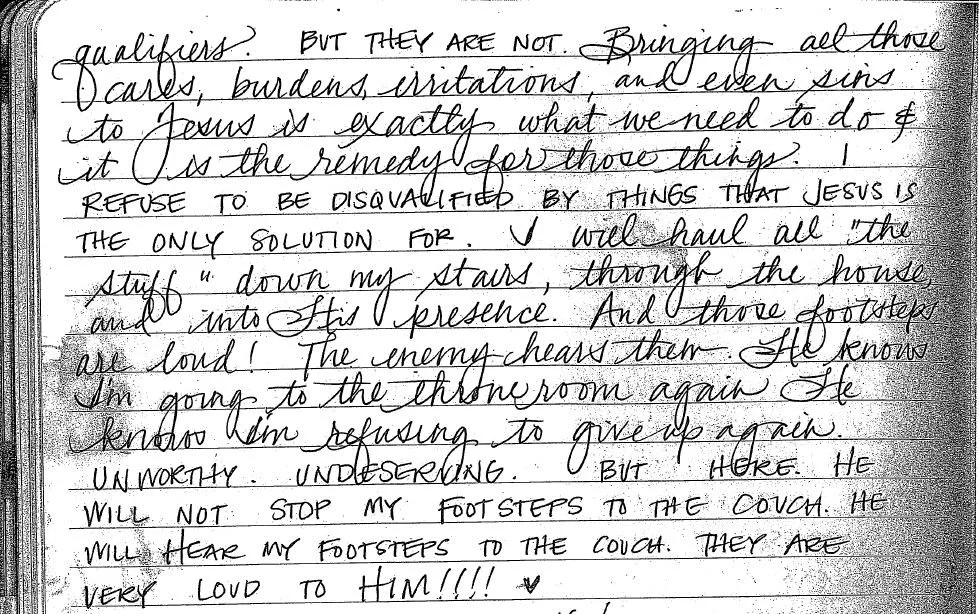 qualifiers. BUT THEY ARE NOT. Bringing all those
cares, burdens, irritations, and even sins
to Jesus is exactly what we need to do &
it is the remedy for those things. I
REFUSE TO BE DISQUALIFIED BY THINGS THAT JESUS IS
THE ONLY SOLUTION FOR. I will haul all "the
stuff" down my stairs, through the house,
and into His presence. And those footsteps
are loud! The enemy hears them. He knows
I'm going to the throne room again He
knows I'm refusing to give up again.
UNWORTHY. UNDESERVING. BUT HERE. HE
WILL NOT STOP MY FOOTSTEPS TO THE COUCH. HE
WILL HEAR MY FOOTSTEPS TO THE COUCH. THEY ARE
VERY LOUD TO HIM!!!! ♥